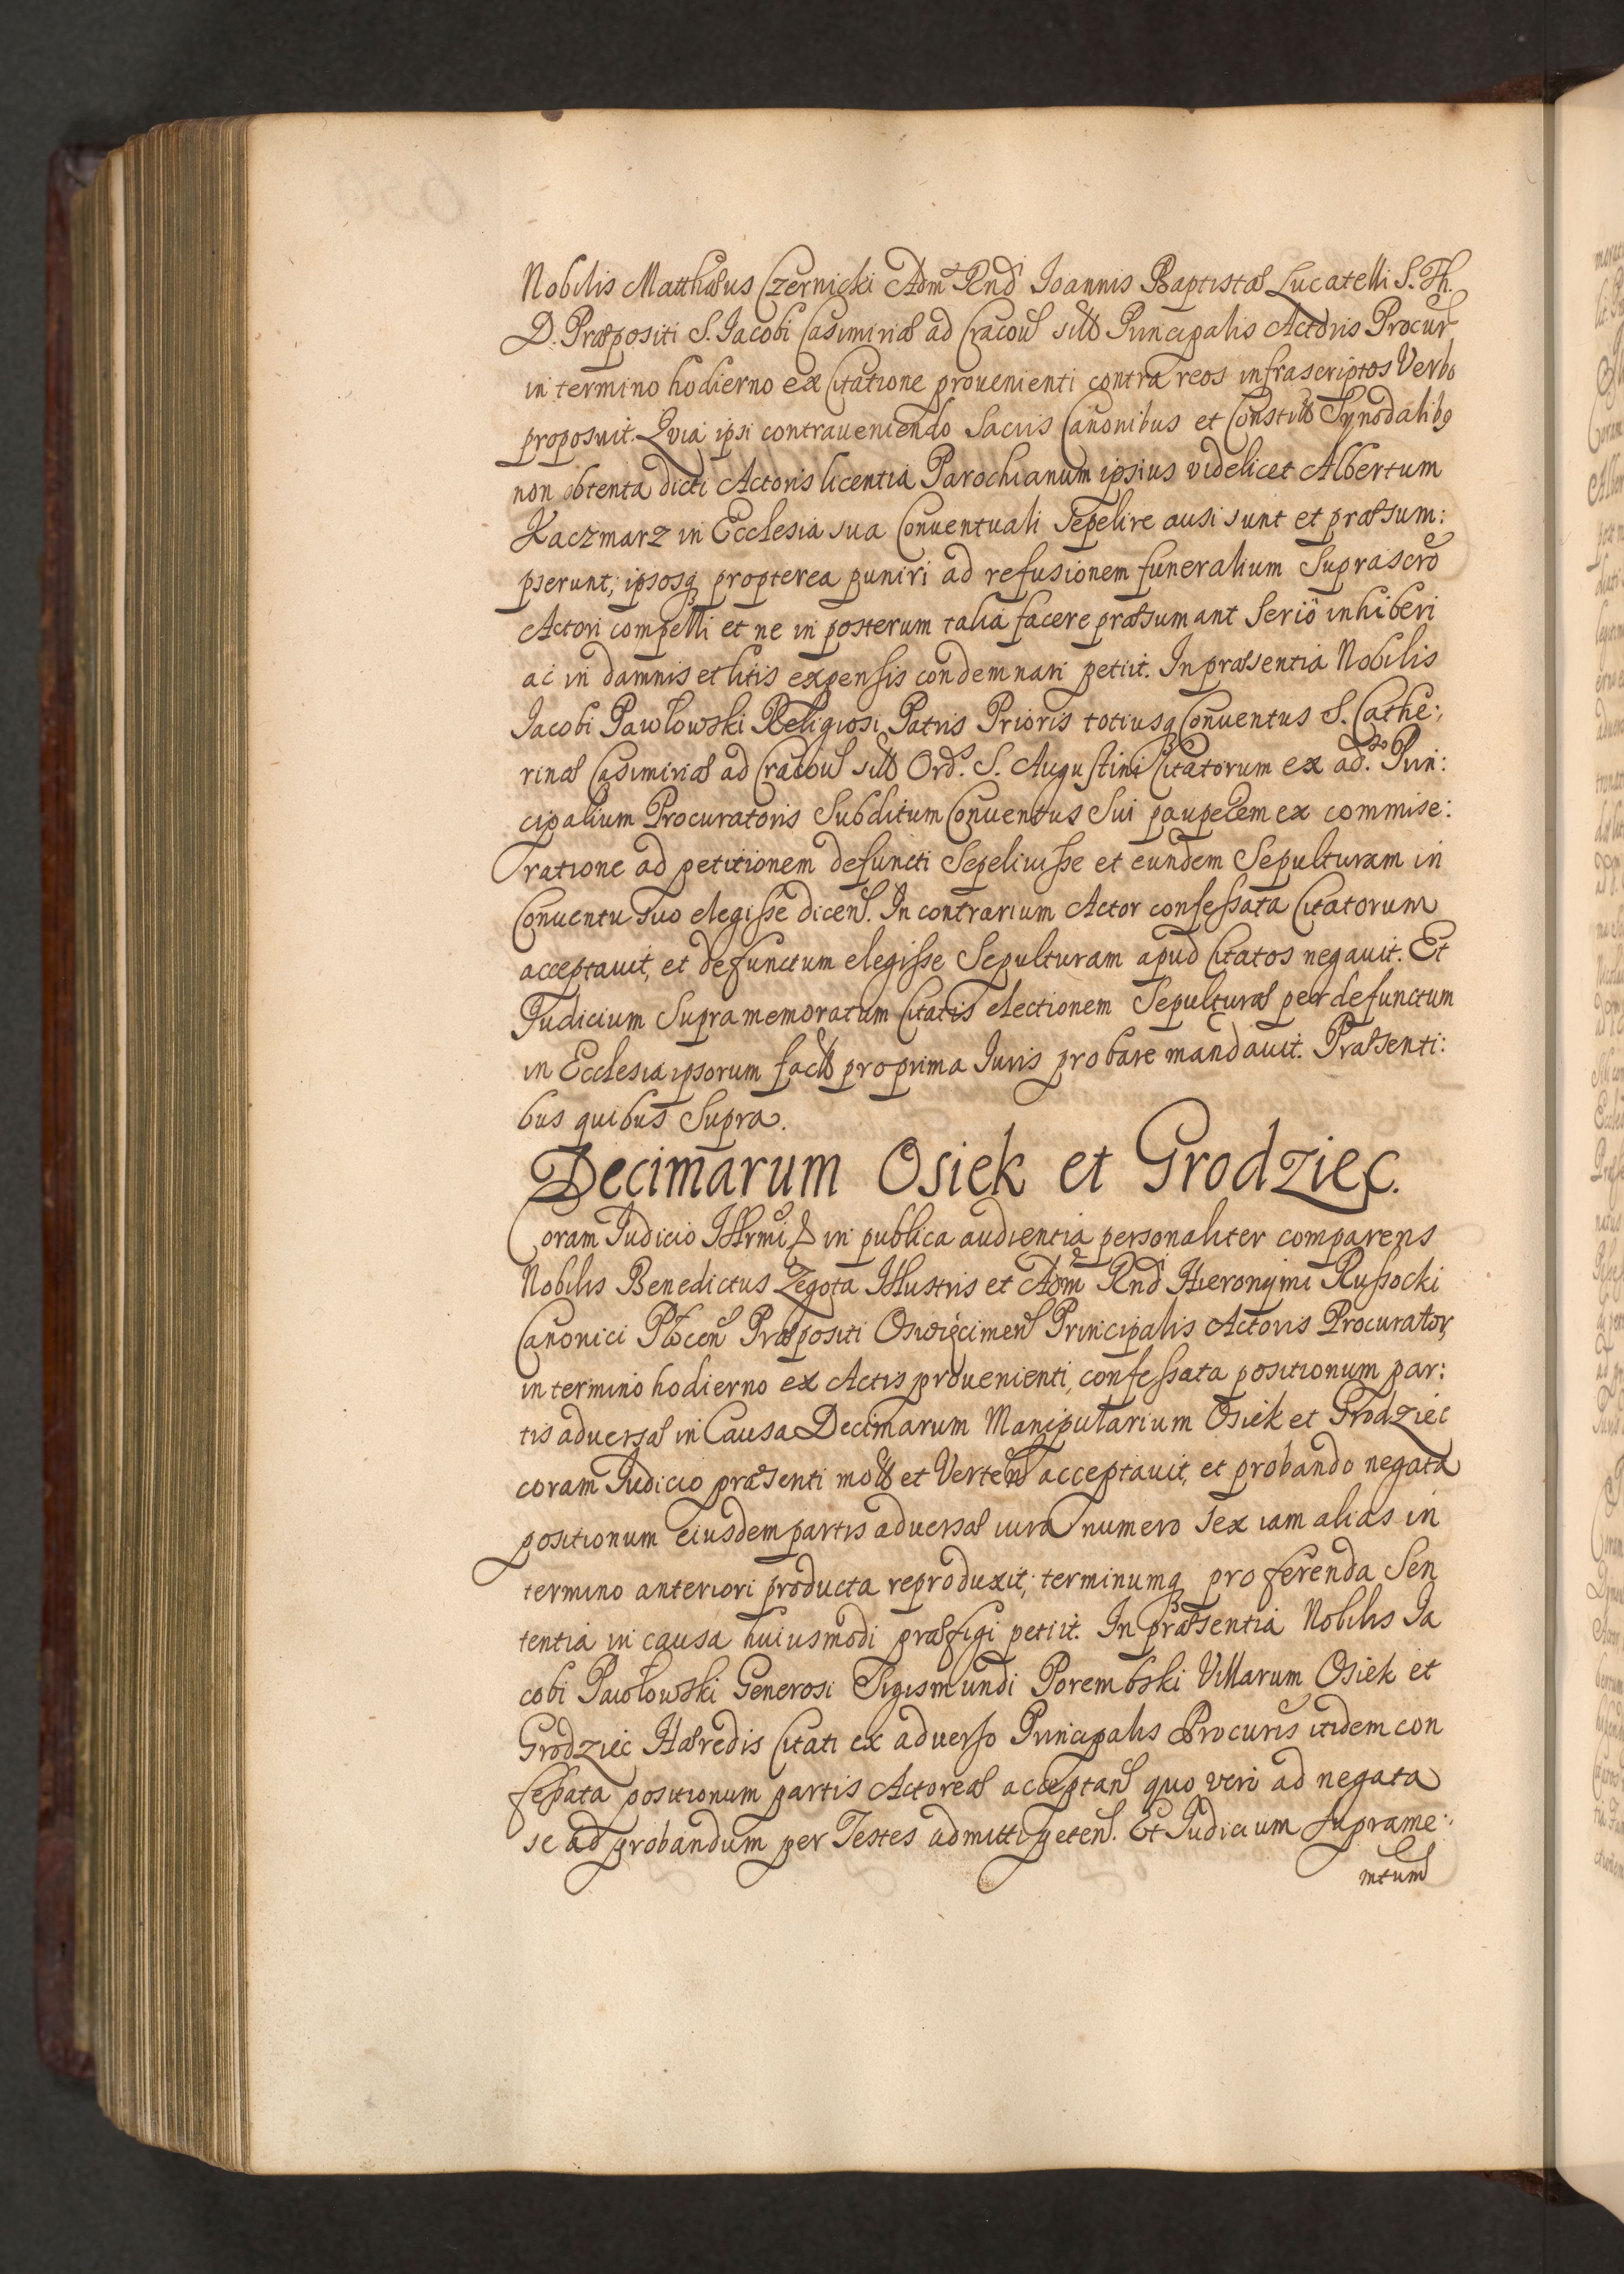 Nobilis Matthæus Czernicki Adm Rnd Ioannis Baptistæ Lucatelli S. Th.
D. Præpositi S. Iacobi Casimiriæ ad Cracou sitt Principalis Actoris Procur
in termino hodierno ex Citatione prouenienti contra reos infrascriptos Verbo
proposuit. Quia ipsi contraueniendo Sacris Canonibus et Constitt Synodalibq
non obtenta dicti Actoris licentia Parochianum ipsius videlicet Albertum
Kaczmarz in Ecclesia sua Conuentuali Sepelire ausi sunt et præsum:
pserunt; ipsosq propterea puniri ad refusionem funeralium Suprascro
Actori compelli et ne in posterum talia facere præsumant Serio inhiberi
ac in damnis et litis expensis condemnari petiit. In præsentia Nobilis
Iacobi Pawlowski Religiosi Patris Prioris totiusq Conuentus S. Cathe:
rinæ Casimiriæ ad Cracou sitt Ord. S. Augustini Citatorum ex ad. Prin:
cipalium Procuratoris Subditum Conuentus Sui pauperem ex commise:
ratione ad petitionem defuncti Sepeliuisse et eundem Sepulturam in
Conuentu suo elegisse dicen. In contrarium Actor confessata Citatorum
acceptauit, et defunctum elegisse Sepulturam apud Citatos negauit. Et
Iudicium Supramemoratum Citatis electionem Sepulturæ per defunctum
in Ecclesia ipsorum fact pro prima Iuris probare mandauit. Præsenti:
bus quibus Supra.
Decimarum Osiek et Grodziec.
Coram Iudicio Illrmi & in publica audientia personaliter comparens
Nobilis Benedictus Zegota Illustris et Adm Rnd Hieronymi Russocki
Canonici Plocen Præpositi Oswięcimen Principalis Actoris Procurator,
in termino hodierno ex Actis prouenienti, confessata positionum par:
tis aduersæ in Causa Decimarum Manipularium Osiek et Grodziec
coram Iudicio præsenti mott et Verten acceptauit, et probando negata
positionum eiusdem partis aduersæ iura numero sex iam alias in
termino anteriori producta reproduxit; terminumq pro ferenda Sen
tentia in causa huiusmodi præfigi petiit. In præsentia Nobilis Ia
cobi Pawlowski Generosi Sigismundi Porembski Villarum Osiek et
Grodziec Hæredis Citati ex aduerso Principalis Procuris itidem con
fessata positionum partis Actoreæ acceptan quo vero ad negata
se ad probandum per Testes admitti peten. Et Iudicium suprame:
mtum